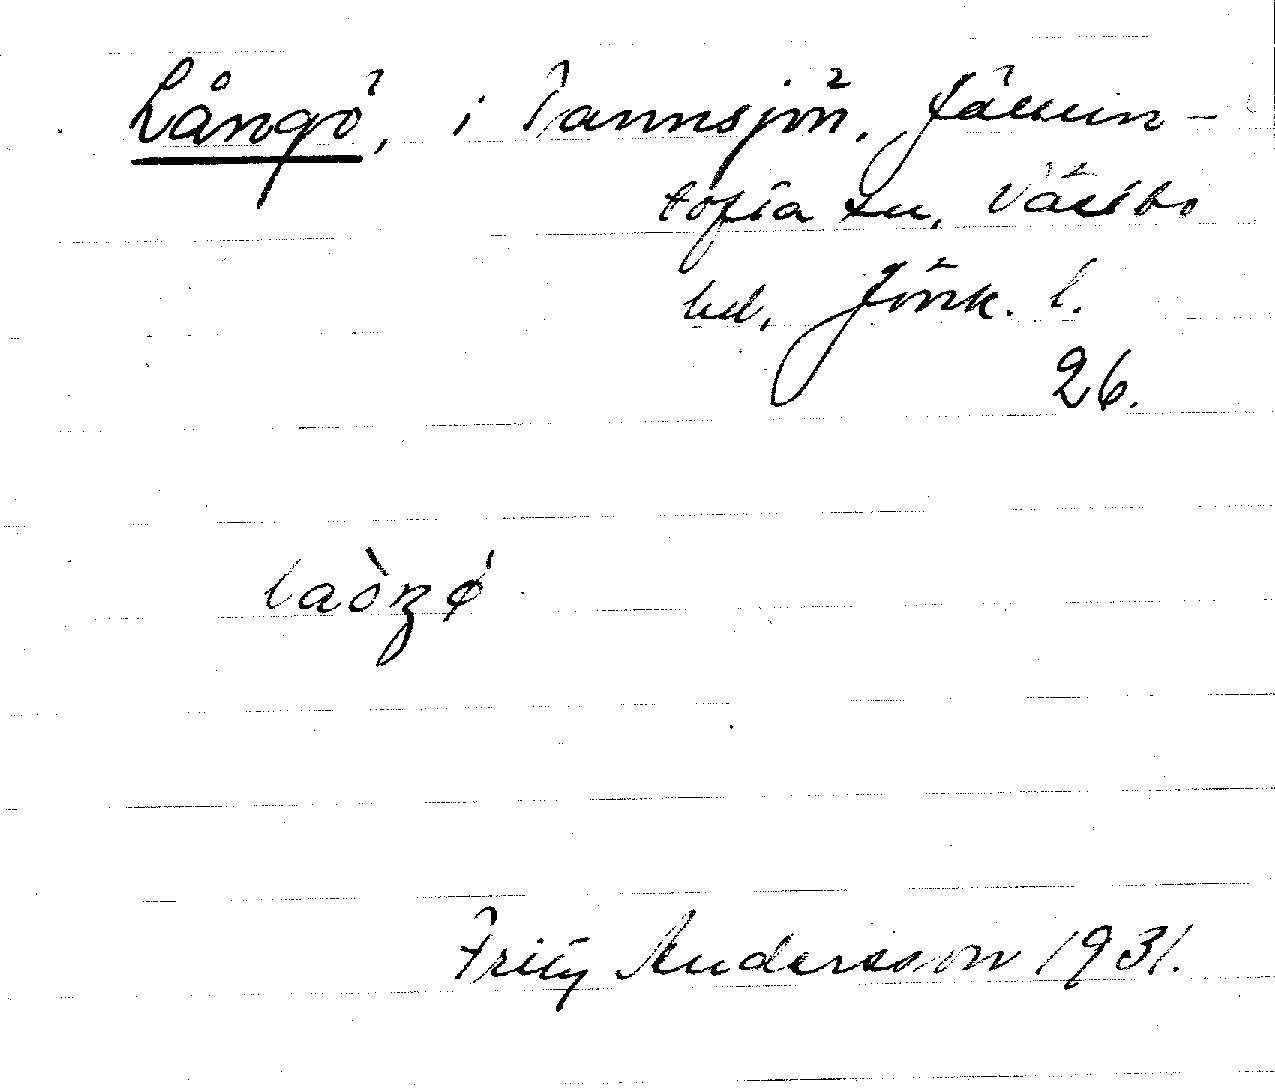 Långö, i Tannsjön, Jällun-
tofta sn, Västbo
hd, Jönk. l.
26.
laòŋǿ
Fritz Andersson 1931.